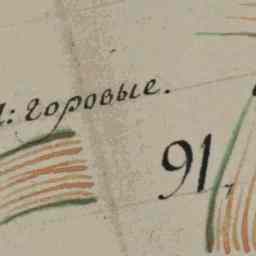 : горовые.
91